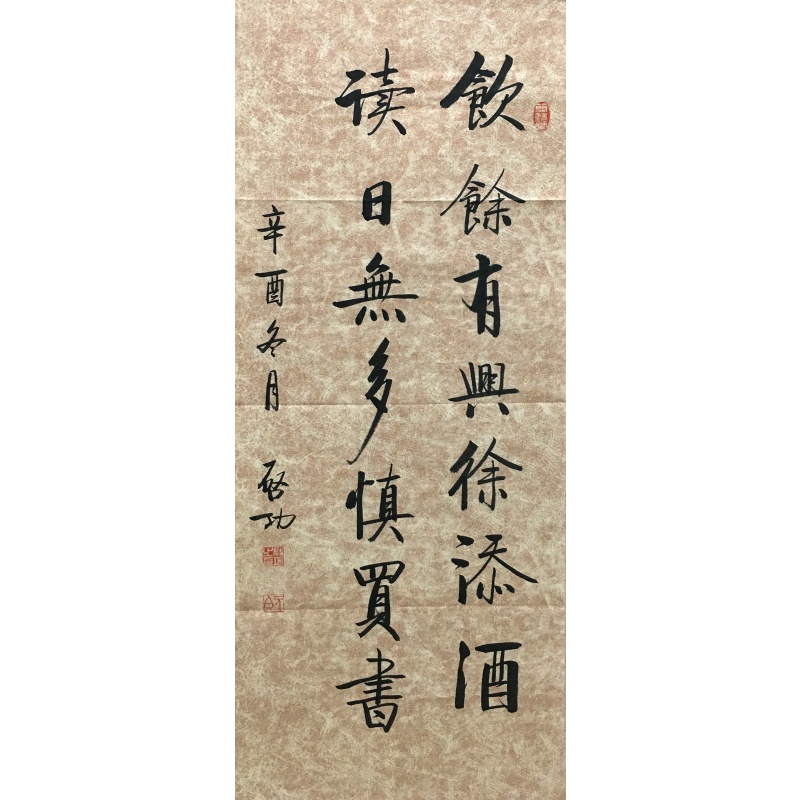 飲餘有興徐添酒
读日無多慎買書
辛酉冬月
啓功